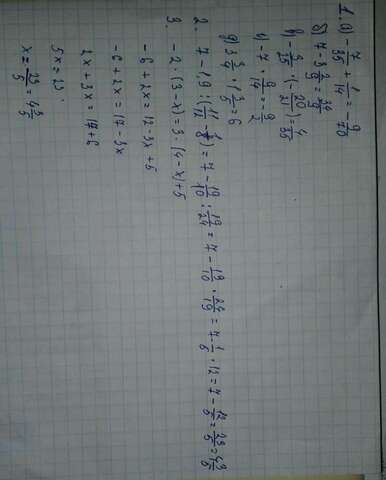 1. а) - 7/35 + 1/14 = - 9/70
б) 7 - 3 2/9 = 34/9
в) - 3/25 · (- 20/21) = 4/35
г) - 7 · 9/14 = - 9/2
д) 3 3/4 · 1 3/5 = 6
2. 7 - 1,9 : (11/12 - 1/8) = 7 - 19/10 : 19/24 = 7 - 19/10 · 24/19 = 7 - 1/5 · 12 = 7 - 12/5 = 23/5 = 4 3/5
3. - 2 · (3 - x) = 3 · (4 - x) + 5
- 6 + 2x = 12 - 3x + 5
- 6 + 2x = 17 - 3x
2x + 3x = 17 + 6
5x = 23
x = 23/5 = 4 3/5